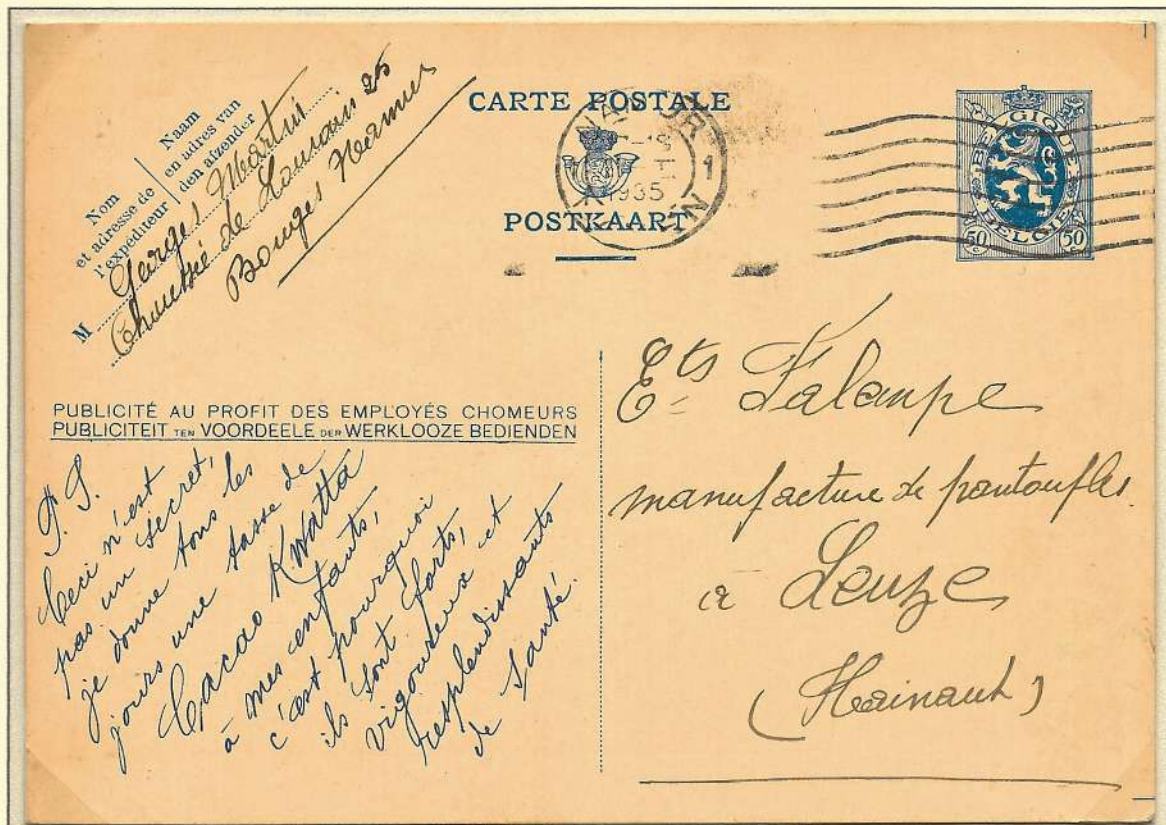 Nom
et adresse de
l'expéditeur
Naam
en adres van
den afzender
M Georges Martin
Chaussée de Louvain 25
Bouges Namur
CARTE POSTALE
POSTKAART
NAMUR
1
1935
BELGIQUE
BELGIË
50 c
50 c
PUBLICITÉ AU PROFIT DES EMPLOYÉS CHOMEURS
PUBLICITEIT TEN VOORDEELE DER WERKLOOZE BEDIENDEN
P.S.
Ceci n'est
pas un secret,
je donne tous les
jours une tasse de
Cacao Kwatta
à mes enfants,
c'est pourquoi
ils sont forts,
vigoureux et
resplendissants
de santé.
Ets Lalampe
manufacture de pantoufles
à Leuze
(Hainaut)